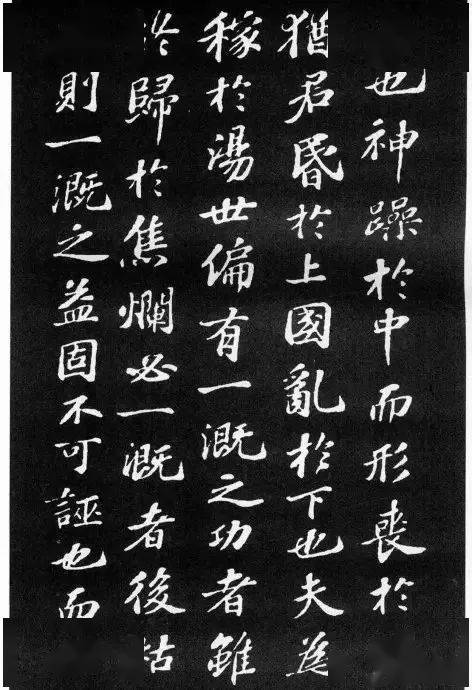 也神躁於中而形喪於
猶君昬於上國亂於下也夫為
稼於湯世偏有一溉之功者雖
終歸於焦爛必一溉者後枯
則一溉之益固不可誣也而